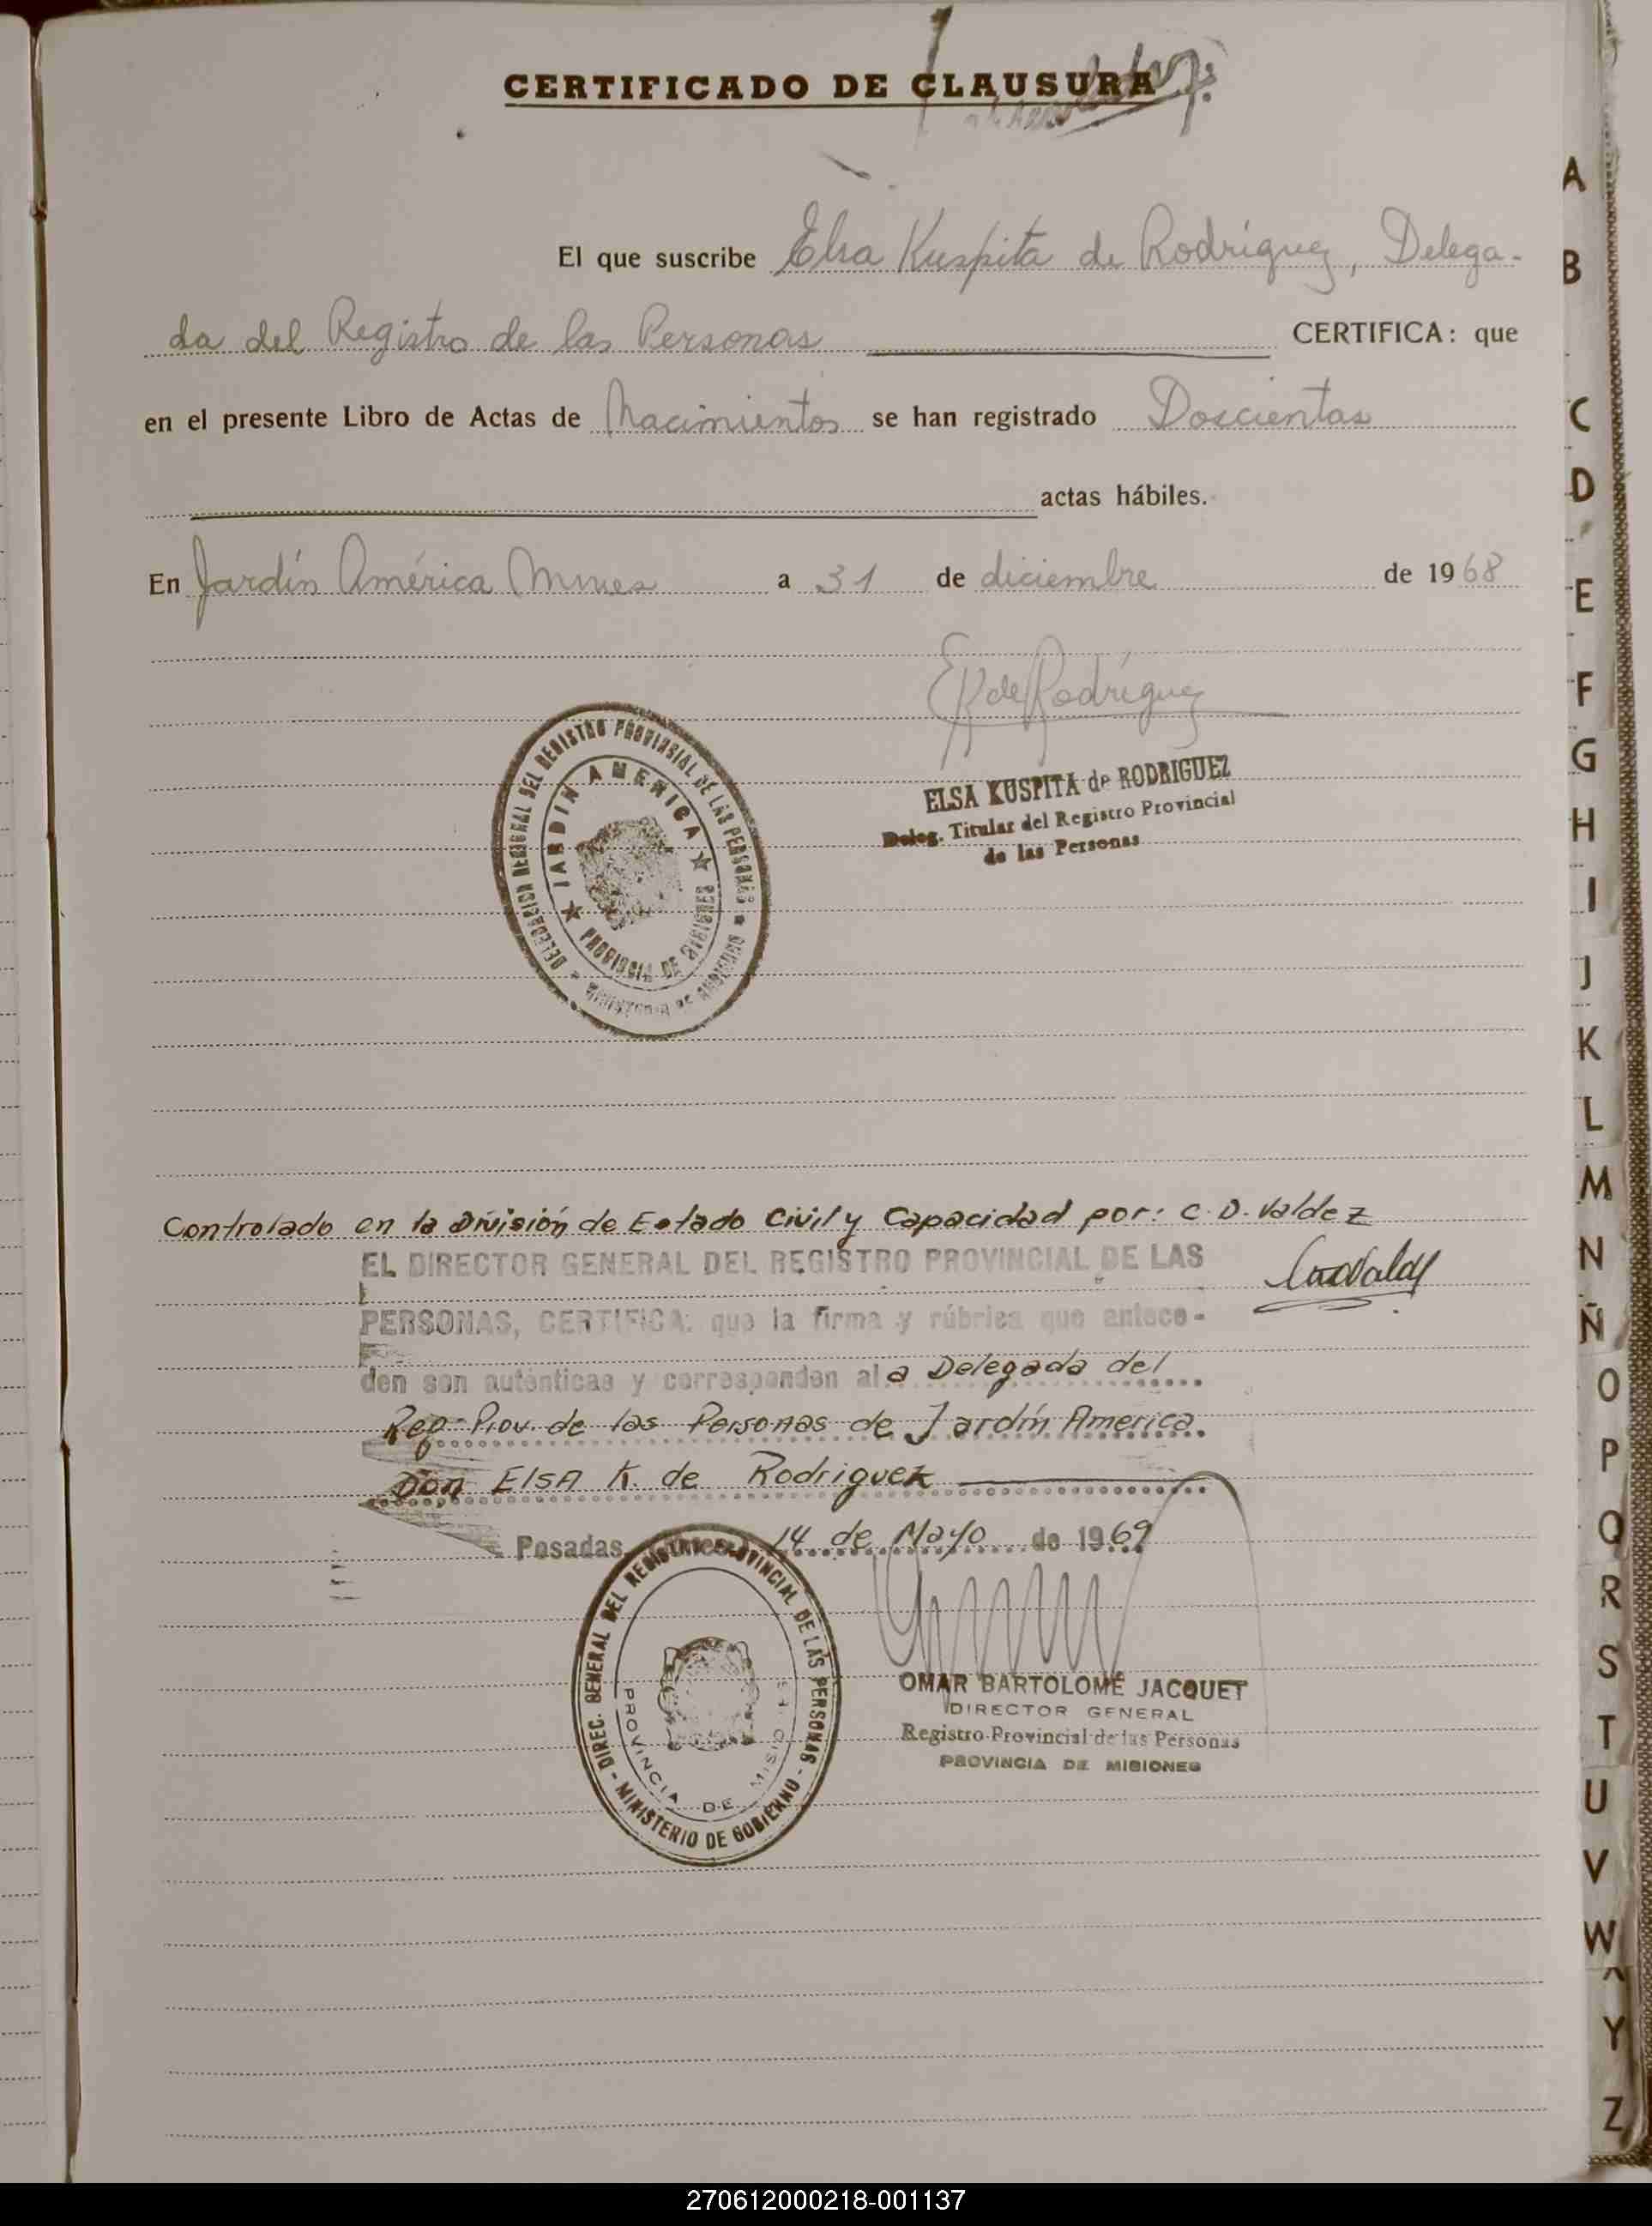 CERTIFICADO DE CLAUSURA
El que suscribe Elsa Kuspita de Rodríguez, Delega-
da del Registro de las Personas CERTIFICA: que
en el presente Libro de Actas de Nacimientos se han registrado Doscientas
actas hábiles.
En Jardín América Mnes a 31 de diciembre de 1968
EK de Rodríguez
ELSA KUSPITA de RODRIGUEZ
Deleg. Titular del Registro Provincial
de las Personas
DELEGACION REGIONAL DEL REGISTRO PROVINSIAL DE LAS PERSONAS
MINISTERIO DE GOBIERNO
JARDIN AMERICA
PROVINCIA DE MISIONES
Controlado en la División de Estado Civil y Capacidad por: C. D. Valdez
EL DIRECTOR GENERAL DEL REGISTRO PROVINCIAL DE LAS
PERSONAS, CERTIFICA: que la firma y rúbrica que antece-
den son auténticas y corresponden al a Delegada del
Reg. Prov. de las Personas de Jardín America
Don ElsA K. de Rodriguez
Posadas, 14 de Mayo de 1969
DIREC. GENERAL DEL REGISTRO PROVINCIAL DE LAS PERSONAS - MINISTERIO DE GOBIERNO -
PROVINCIA DE MISIONES
OMAR BARTOLOMÉ JACQUET
DIRECTOR GENERAL
Registro Provincial de las Personas
PROVINCIA DE MISIONES
A
B
C
D
E
F
G
H
I
J
K
L
M
N
Ñ
O
P
Q
R
S
T
U
V
W
Y
Z
270612000218-001137